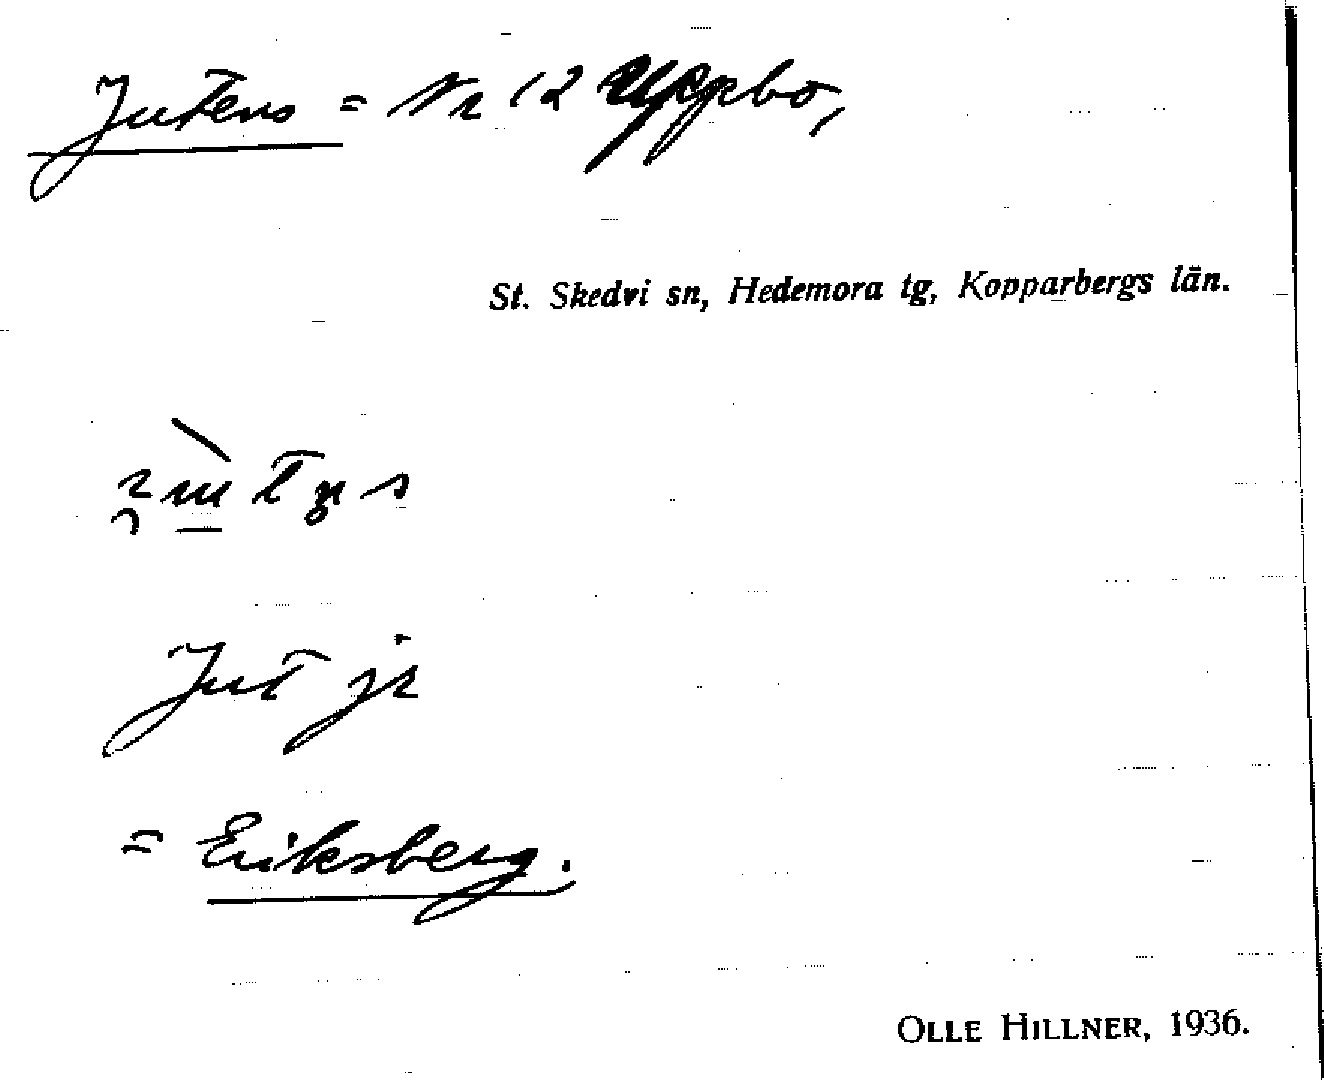 Jutens = Nr 12 Uppbo,
St. Skedvi sn, Hedemora tg, Kopparbergs län.
Jut jr
= Eriksberg.
OLLE HILLNER, 1936.